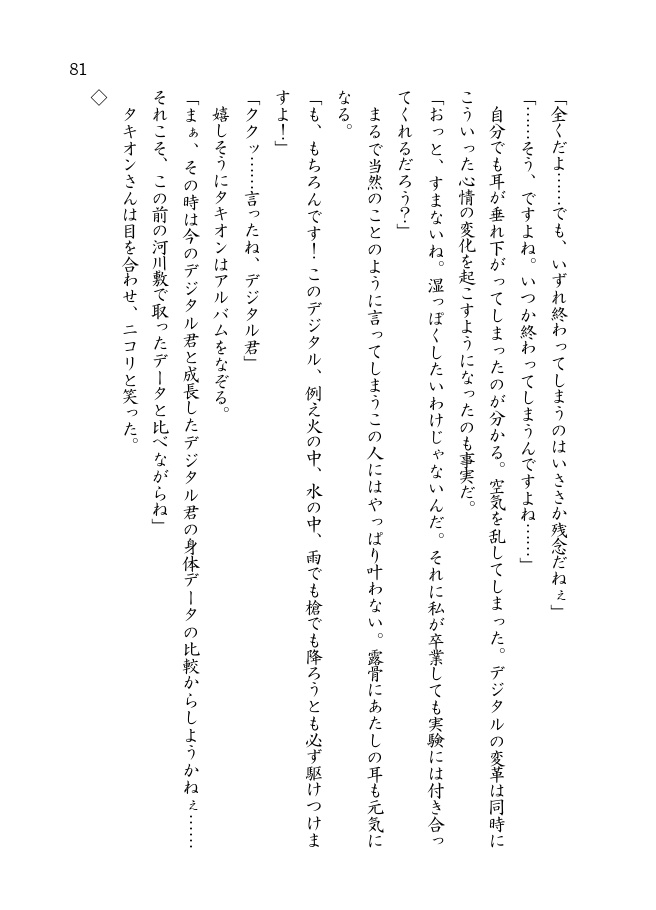 「全くだよ……でも、いずれ終わってしまうのはいささか残念だねぇ」
「……そう、ですよね。いつか終わってしまうんですよね……」
　自分でも耳が垂れ下がってしまったのが分かる。空気を乱してしまった。デジタルの変革は同時に
こういった心情の変化を起こすようになったのも事実だ。
「おっと、すまないね。湿っぽくしたいわけじゃないんだ。それに私が卒業しても実験には付き合っ
てくれるだろう？」
　まるで当然のことのように言ってしまうこの人にはやっぱり叶わない。露骨にあたしの耳も元気に
なる。
「も、もちろんです！このデジタル、例え火の中、水の中、雨でも槍でも降ろうとも必ず駆けつけま
すよ！」
「ククッ……言ったね、デジタル君」
　嬉しそうにタキオンはアルバムをなぞる。
「まぁ、その時は今のデジタル君と成長したデジタル君の身体データの比較からしようかねぇ……
それこそ、この前の河川敷で取ったデータと比べながらね」
　タキオンさんは目を合わせ、ニコリと笑った。
◇
81